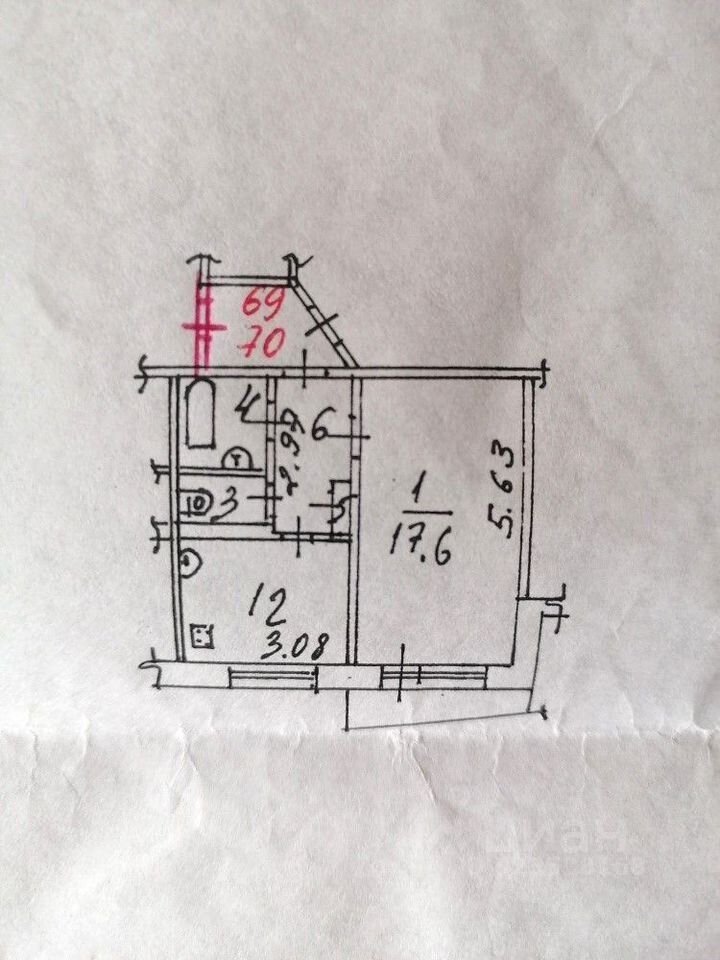 69
70
4
2.97
6
3
5
1
17.6
5.63
12
3.08
циан